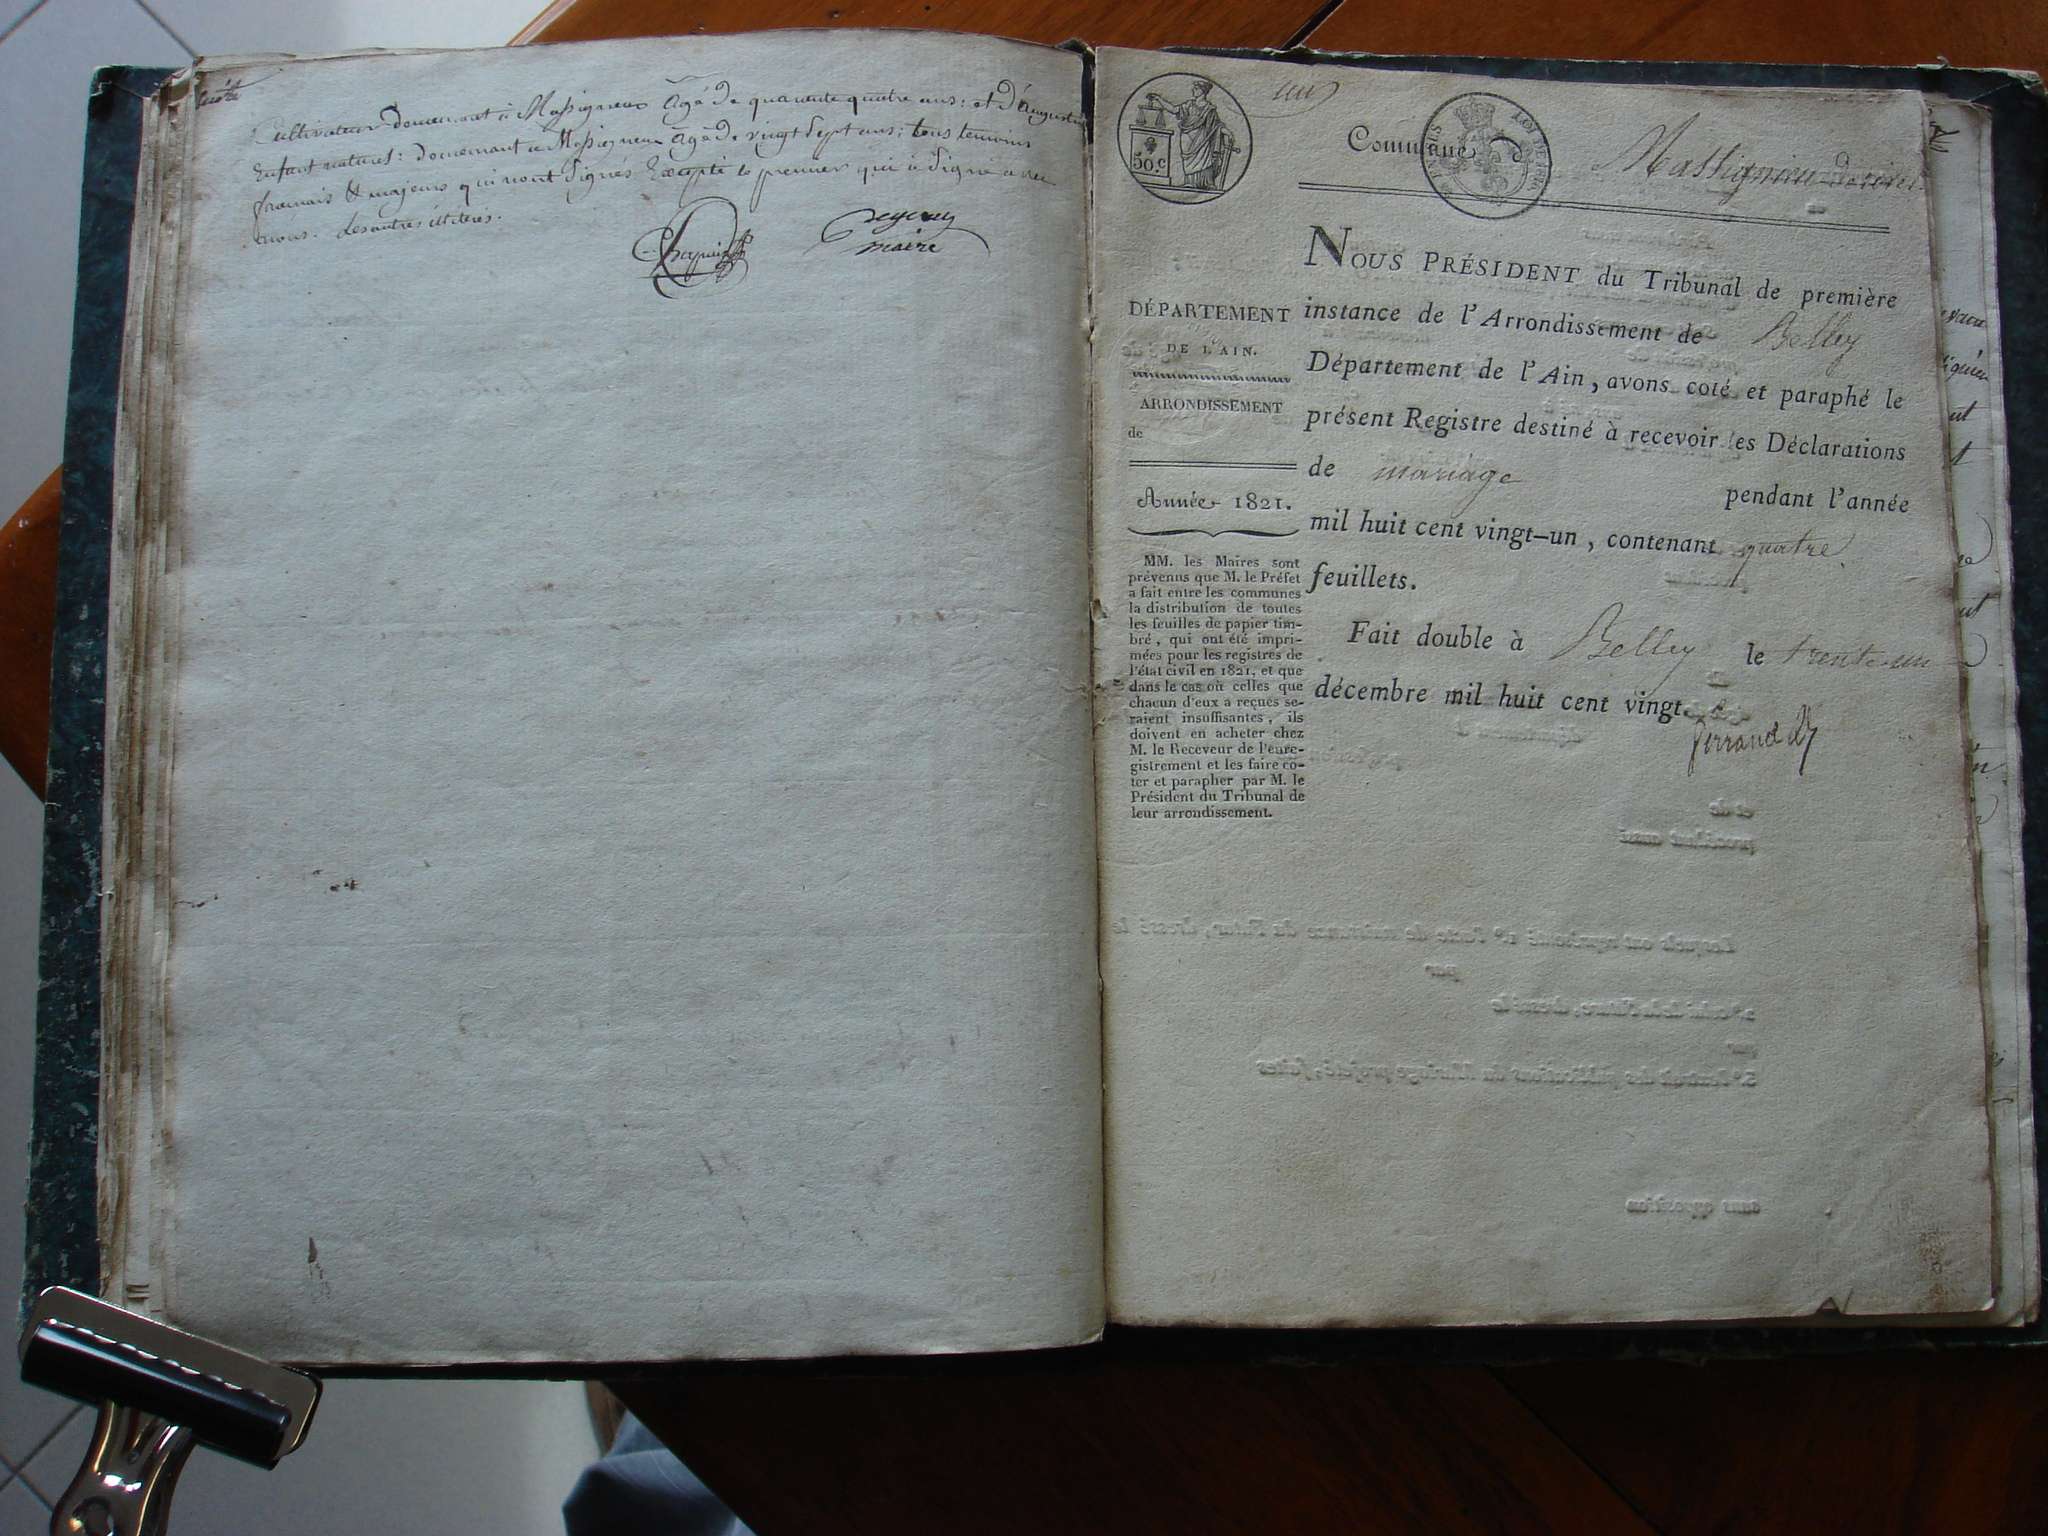 Cultivateur demeurant à Massigneux âgé de quarante quatre ans : et d'Augustin
Enfant naturel : demeurant à Massigneux âgé de vingt sept ans ; tous temoins
français & majeurs qui n'ont Signés Excepté le premier qui à Signé avec
nous. les autres illiterés.
maire
un
50. c
Commune Massignieu de rives
NOUS PRÉSIDENT du Tribunal de première
instance de l'Arrondissement de Belley
Département de l'Ain, avons coté et paraphé le
présent Registre destiné à recevoir les Déclarations
de mariage pendant l'année
mil huit cent vingt-un, contenant quatre
feuillets.
Fait double à Belley le trente-un
décembre mil huit cent vingt.
DÉPARTEMENT
DE L'AIN.
ARRONDISSEMENT
de
Année 1821.
MM. les Maires sont
prévenus que M. le Préfet
a fait entre les communes
la distribution de toutes
les feuilles de papier tim-
bré, qui ont été impri-
mées pour les registres de
l'état civil en 1821, et que
dans le cas où celles que
chacun d'eux a reçues se-
raient insuffisantes, ils
doivent en acheter chez
M. le Receveur de l'enre-
gistrement et les faire co-
ter et parapher par M. le
Président du Tribunal de
leur arrondissement.